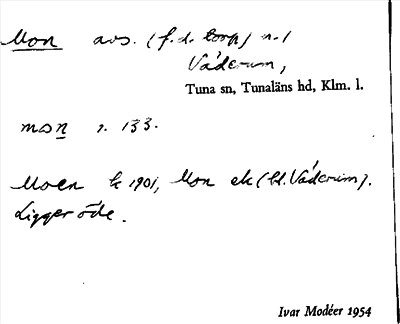 Mon avs. (f. d. torp) n. 1
Väderum,
Tuna sn, Tunaläns hd, Klm. l.
mon s. 133.
Moen k 1901, Mon ek (bl. Väderum).
Ligger öde.
Ivar Modéer 1954